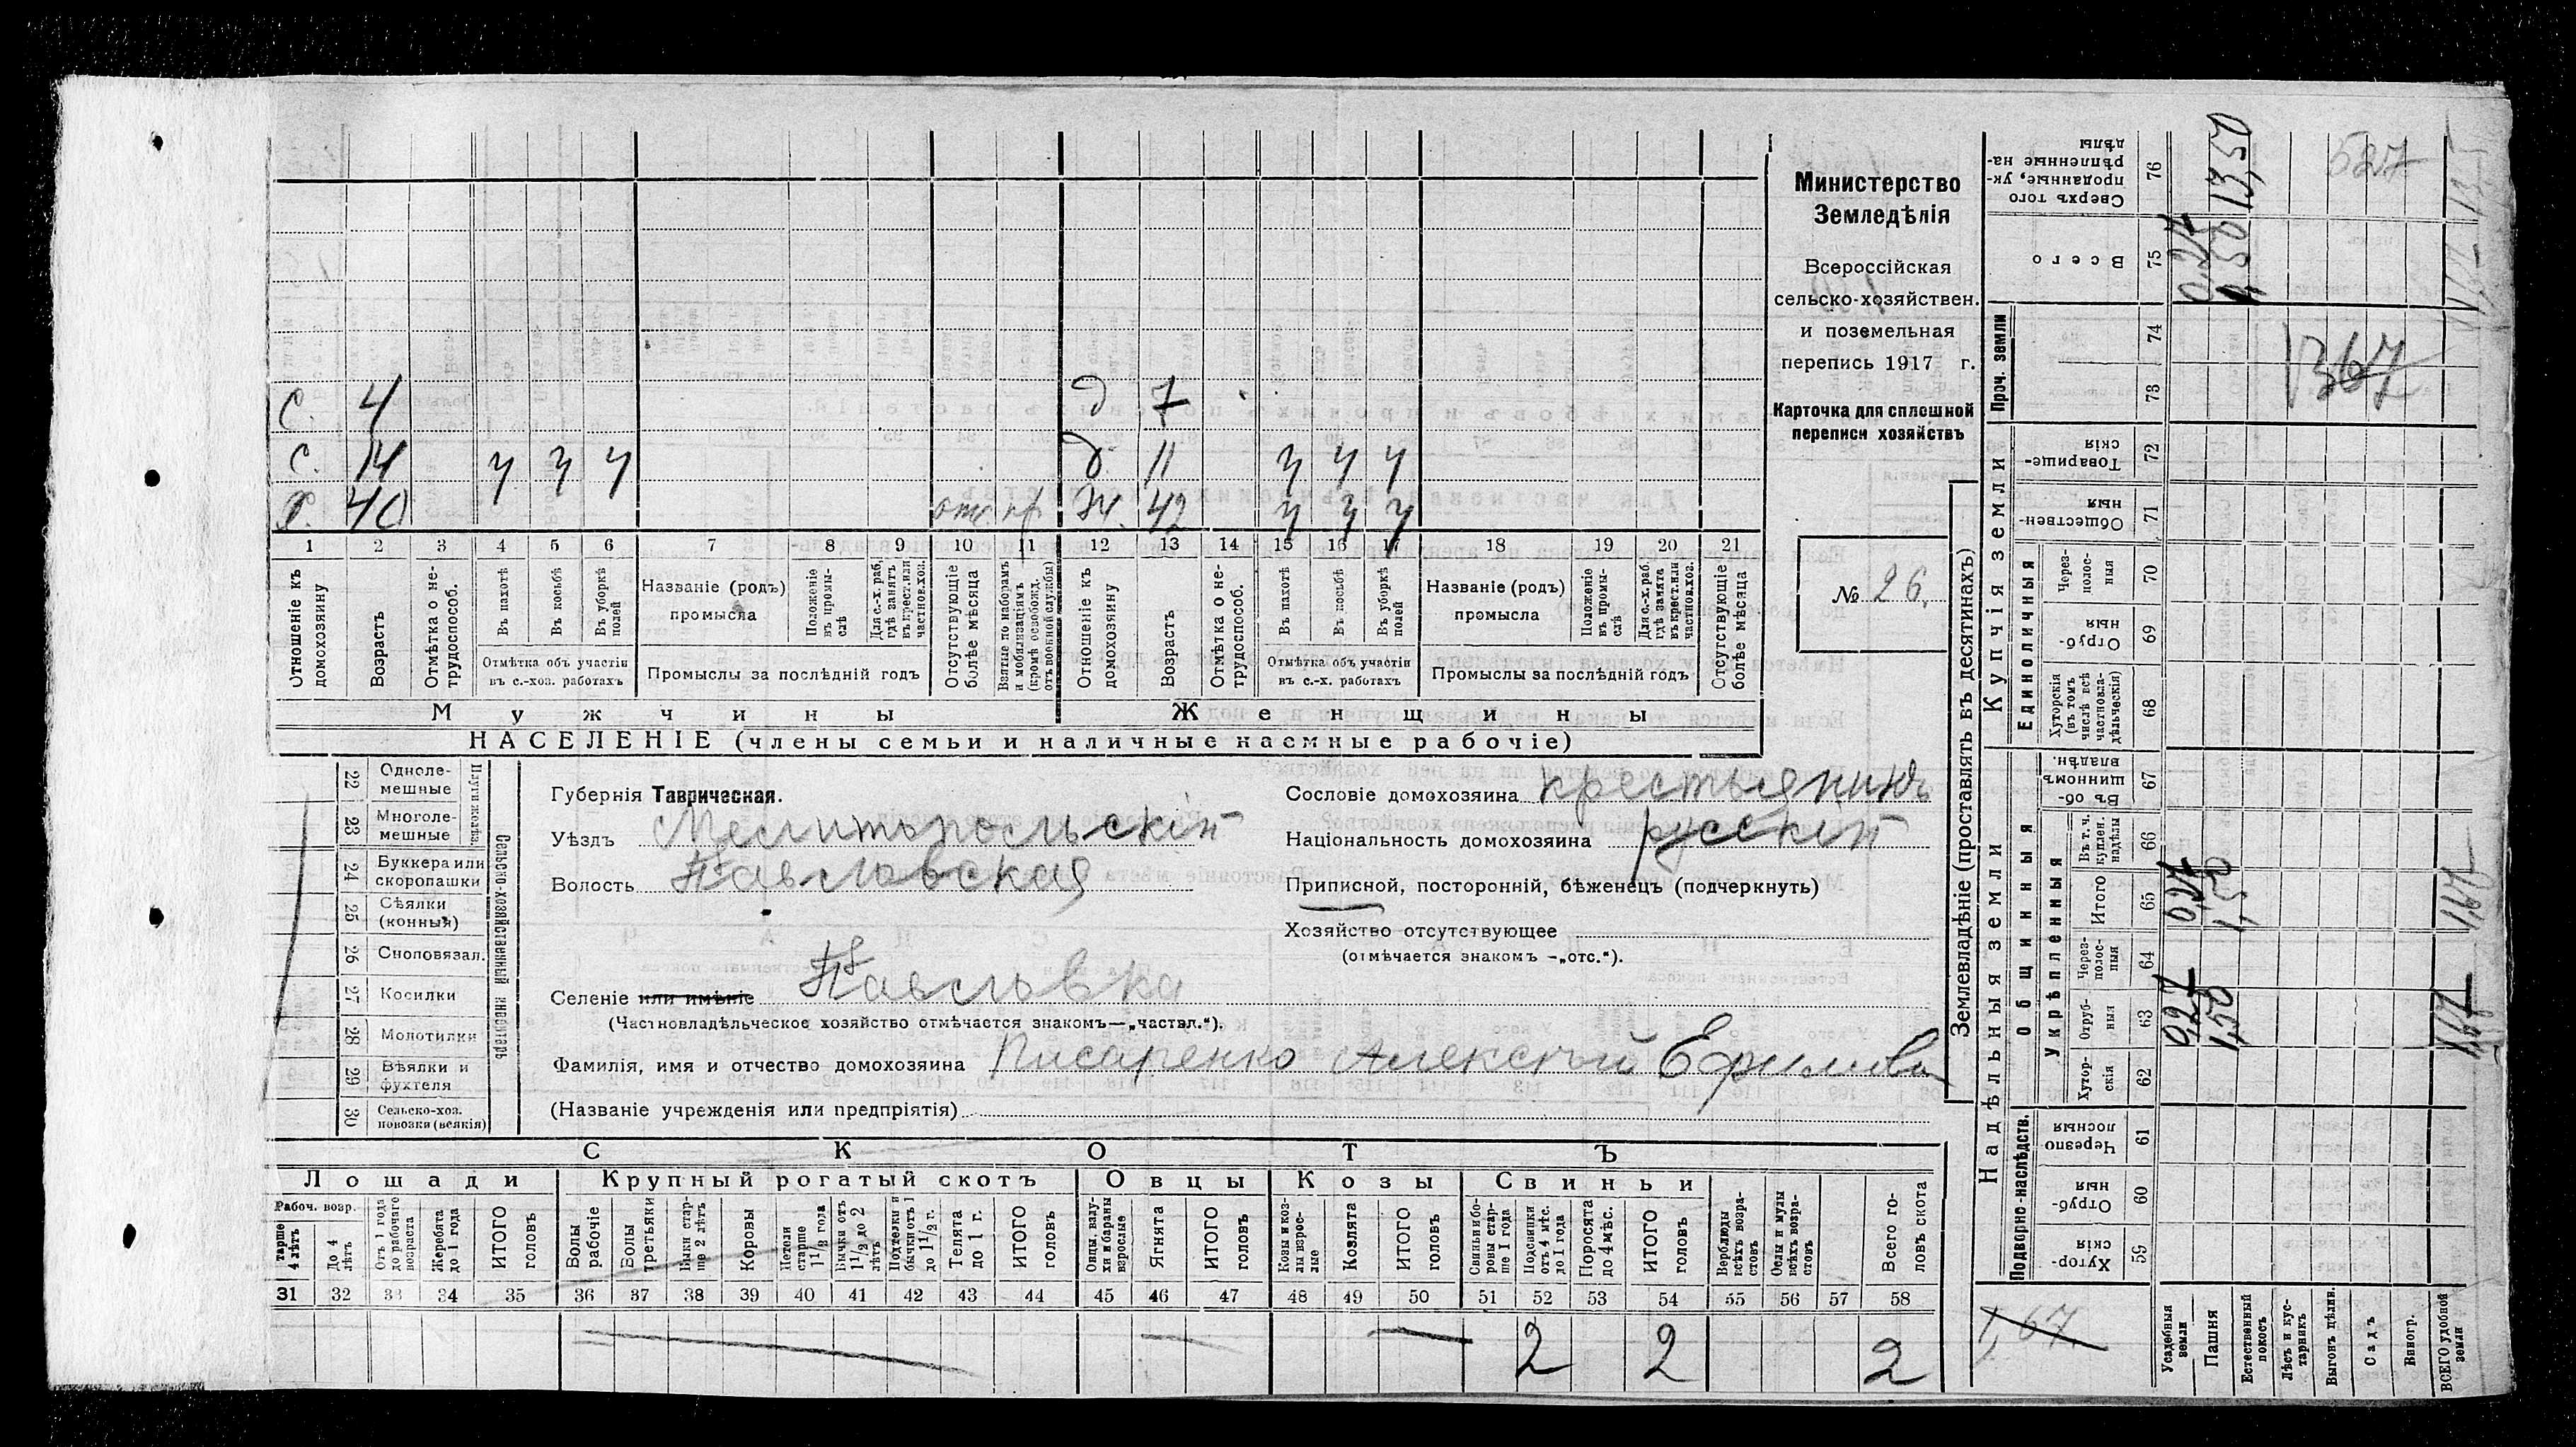 с. 4 д 7
с. 14 ч ч ч д. 11 ч ч ч
х. 40 отс. пр ж. 42 ч ч ч
1 2 3 4 5 6 7 8 9 10 11 12 13 14 15 16 17 18 19 20 21
Отношеніе къ домохозяину
Возрастъ
Отмѣтка о не-трудоспособ.
Въ пахотѣ
Въ косьбѣ
Въ уборкѣ полей
Отмѣтка объ участіи
въ с.-хоз. работахъ
Названіе (родъ)
промысла
Положеніе въ промы-слѣ
Для с.-х. раб. гдѣ занятъ въ крест. или частнов. хоз.
Промыслы за послѣдній годъ
Отсутствующіе болѣе мѣсяца
Взятые по наборамъ и мобилизаціямъ (кромѣ освобожд. отъ военной службы)
Отношеніе къ домохозяину
Возрастъ
Отмѣтка о не-трудоспособ.
Въ пахотѣ
Въ косьбѣ
Въ уборкѣ полей
Отмѣтка объ участіи
въ с.-х. работахъ
Названіе (родъ)
промысла
Положеніе въ промы-слѣ
Для с.-х. раб. гдѣ занята въ крест. или частнов. хоз.
Промыслы за послѣдній годъ
Отсутствующіе болѣе мѣсяца
Мужчины Женщины
НАСЕЛЕНІЕ (члены семьи и наличные наемные рабочіе)
Министерство
Земледѣлія
Всероссійская
сельско-хозяйствен.
и поземельная
перепись 1917 г.
Карточка для сплошной
переписи хозяйствъ
№ 26.
22 Одноле-мешные
23 Многоле-мешные
24 Буккера или скоропашки
25 Сѣялки (конныя)
26 Сноповязал.
27 Косилки
28 Молотилки
29 Вѣялки и фухтеля
30 Сельско-хоз. повозки (всякія)
Сельско-хозяйственный инвентарь
Губернія Таврическая.
Уѣздъ Мелитопольскій
Волость Павловская
Селеніе или имѣніе Павловка
(Частновладѣльческое хозяйство отмѣчается знакомъ—„частвл.“).
Фамилія, имя и отчество домохозяина Писаренко Алексѣй Ефимов
(Названіе учрежденія или предпріятія)
Сословіе домохозяина крестьянинъ
Національность домохозяина русскій
Приписной, посторонній, бѣженецъ (подчеркнуть)
Хозяйство отсутствующее
(отмѣчается знакомъ —„отс.“).
СКОТЪ
Лошади Крупный рогатый скотъ Овцы Козы Свиньи
Рабоч. возр.
тарше 4 лѣтъ
До 4 лѣтъ
Отъ 1 года до рабочаго возраста
Жеребята до 1 года
ИТОГО головъ
Волы рабочіе
Волы третьяки
Быки стар-ше 2 лѣтъ
Коровы
Нетели старше 1 1/2 года
Бычки отъ 1 1/2 до 2 лѣтъ
Подтелки и бычки отъ 1 до 1 1/2 г.
Телята до 1 г.
ИТОГО головъ
Овцы, валу-хи и бараны взрослые
Ягнята
ИТОГО головъ
Козы и коз-лы взрос-лые
Козлята
ИТОГО головъ
Свиньи и бо-ровы стар-ше 1 года
Подсвинки отъ 4 мѣс. до 1 года
Поросята до 4 мѣс.
ИТОГО головъ
Верблюды всѣхъ возра-стовъ
Ослы и мулы всѣхъ возра-стовъ
Всего го-ловъ скота
31 32 33 34 35 36 37 38 39 40 41 42 43 44 45 46 47 48 49 50 51 52 53 54 55 56 57 58
2 2 2
Землевладѣніе (проставлять въ десятинахъ)
Надѣльныя земли Купчія земли Проч. земли
Подворно-наслѣдств. Общинныя Единоличныя
Укрѣпленныя
Хутор-скія 59
Отруб-ныя 60
Черезпо лосныя 61
Хутор-скія 62
Отруб-ныя 63
Через-полос-ныя 64
Итого 65
Въ т. ч. куплен. надѣлы 66
Въ об-щинномъ владѣн. 67
Хуторскія (въ томъ числѣ всѣ частновла-дѣльческія) 68
Отруб-ныя 69
Через-полос-ныя 70
Обществен-ныя 71
Товарище-скія 72
73
74
Всего 75
Сверхъ того проданные, ук-рѣпленные на-дѣлы 76
Усадебныя земли
Пашня
Естественный покосъ
Лѣсъ и кус-тарникъ
Выгонъ цѣлин.
Садъ
Виногр.
ВСЕГО удобной земли
1,67
1,50
1,50
1,67
13,50
1367
527